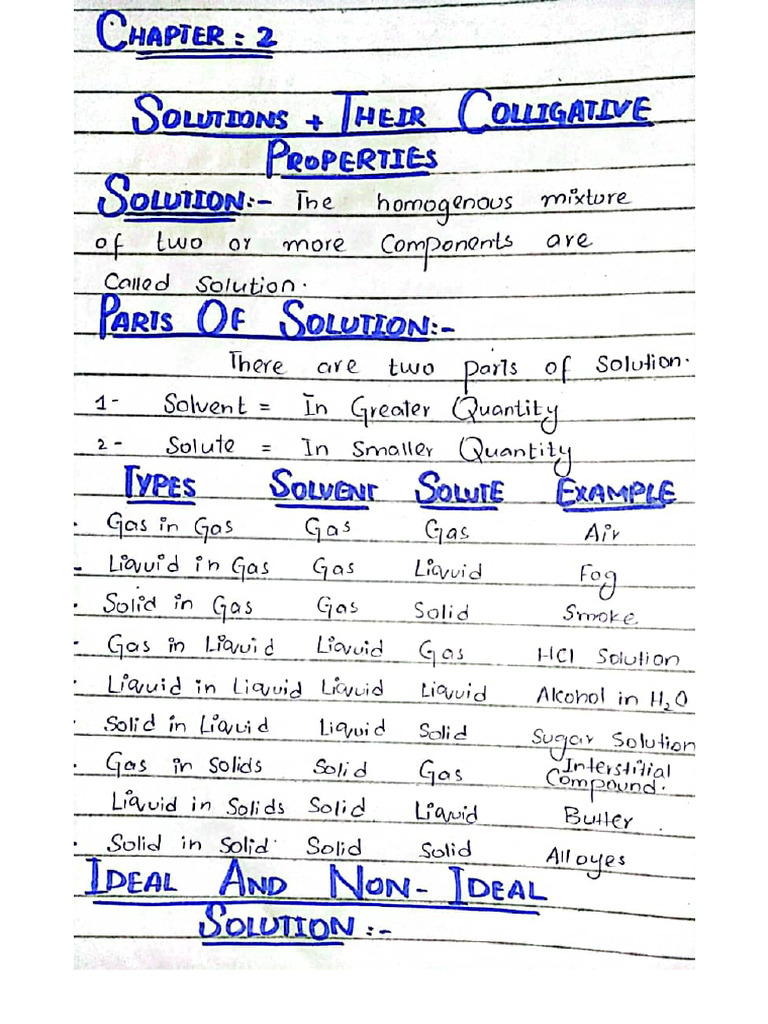 CHAPTER : 2
SOLUTIONS + THEIR COLLIGATIVE
PROPERTIES
SOLUTION:- The homogenous mixture
of two or more Components are
Called Solution.
PARTS OF SOLUTION:-
There are two parts of Solution.
1- Solvent = In Greater Quantity
2- Solute = In Smaller Quantity
TYPES SOLVENT SOLUTE EXAMPLE
. Gas in Gas Gas Gas Air
- Liquid in Gas Gas Liquid Fog
. Solid in Gas Gas Solid Smoke
. Gas in Liquid Liquid Gas HCl Solution
. Liquid in Liquid Liquid Liquid Alcohol in H₂O
. Solid in Liquid Liquid Solid Sugar Solution
. Gas in Solids Solid Gas Interstitial
Compound.
Liquid in Solids Solid Liquid Butter
. Solid in Solid. Solid Solid Alloyes
IDEAL AND NON-IDEAL
SOLUTION :-